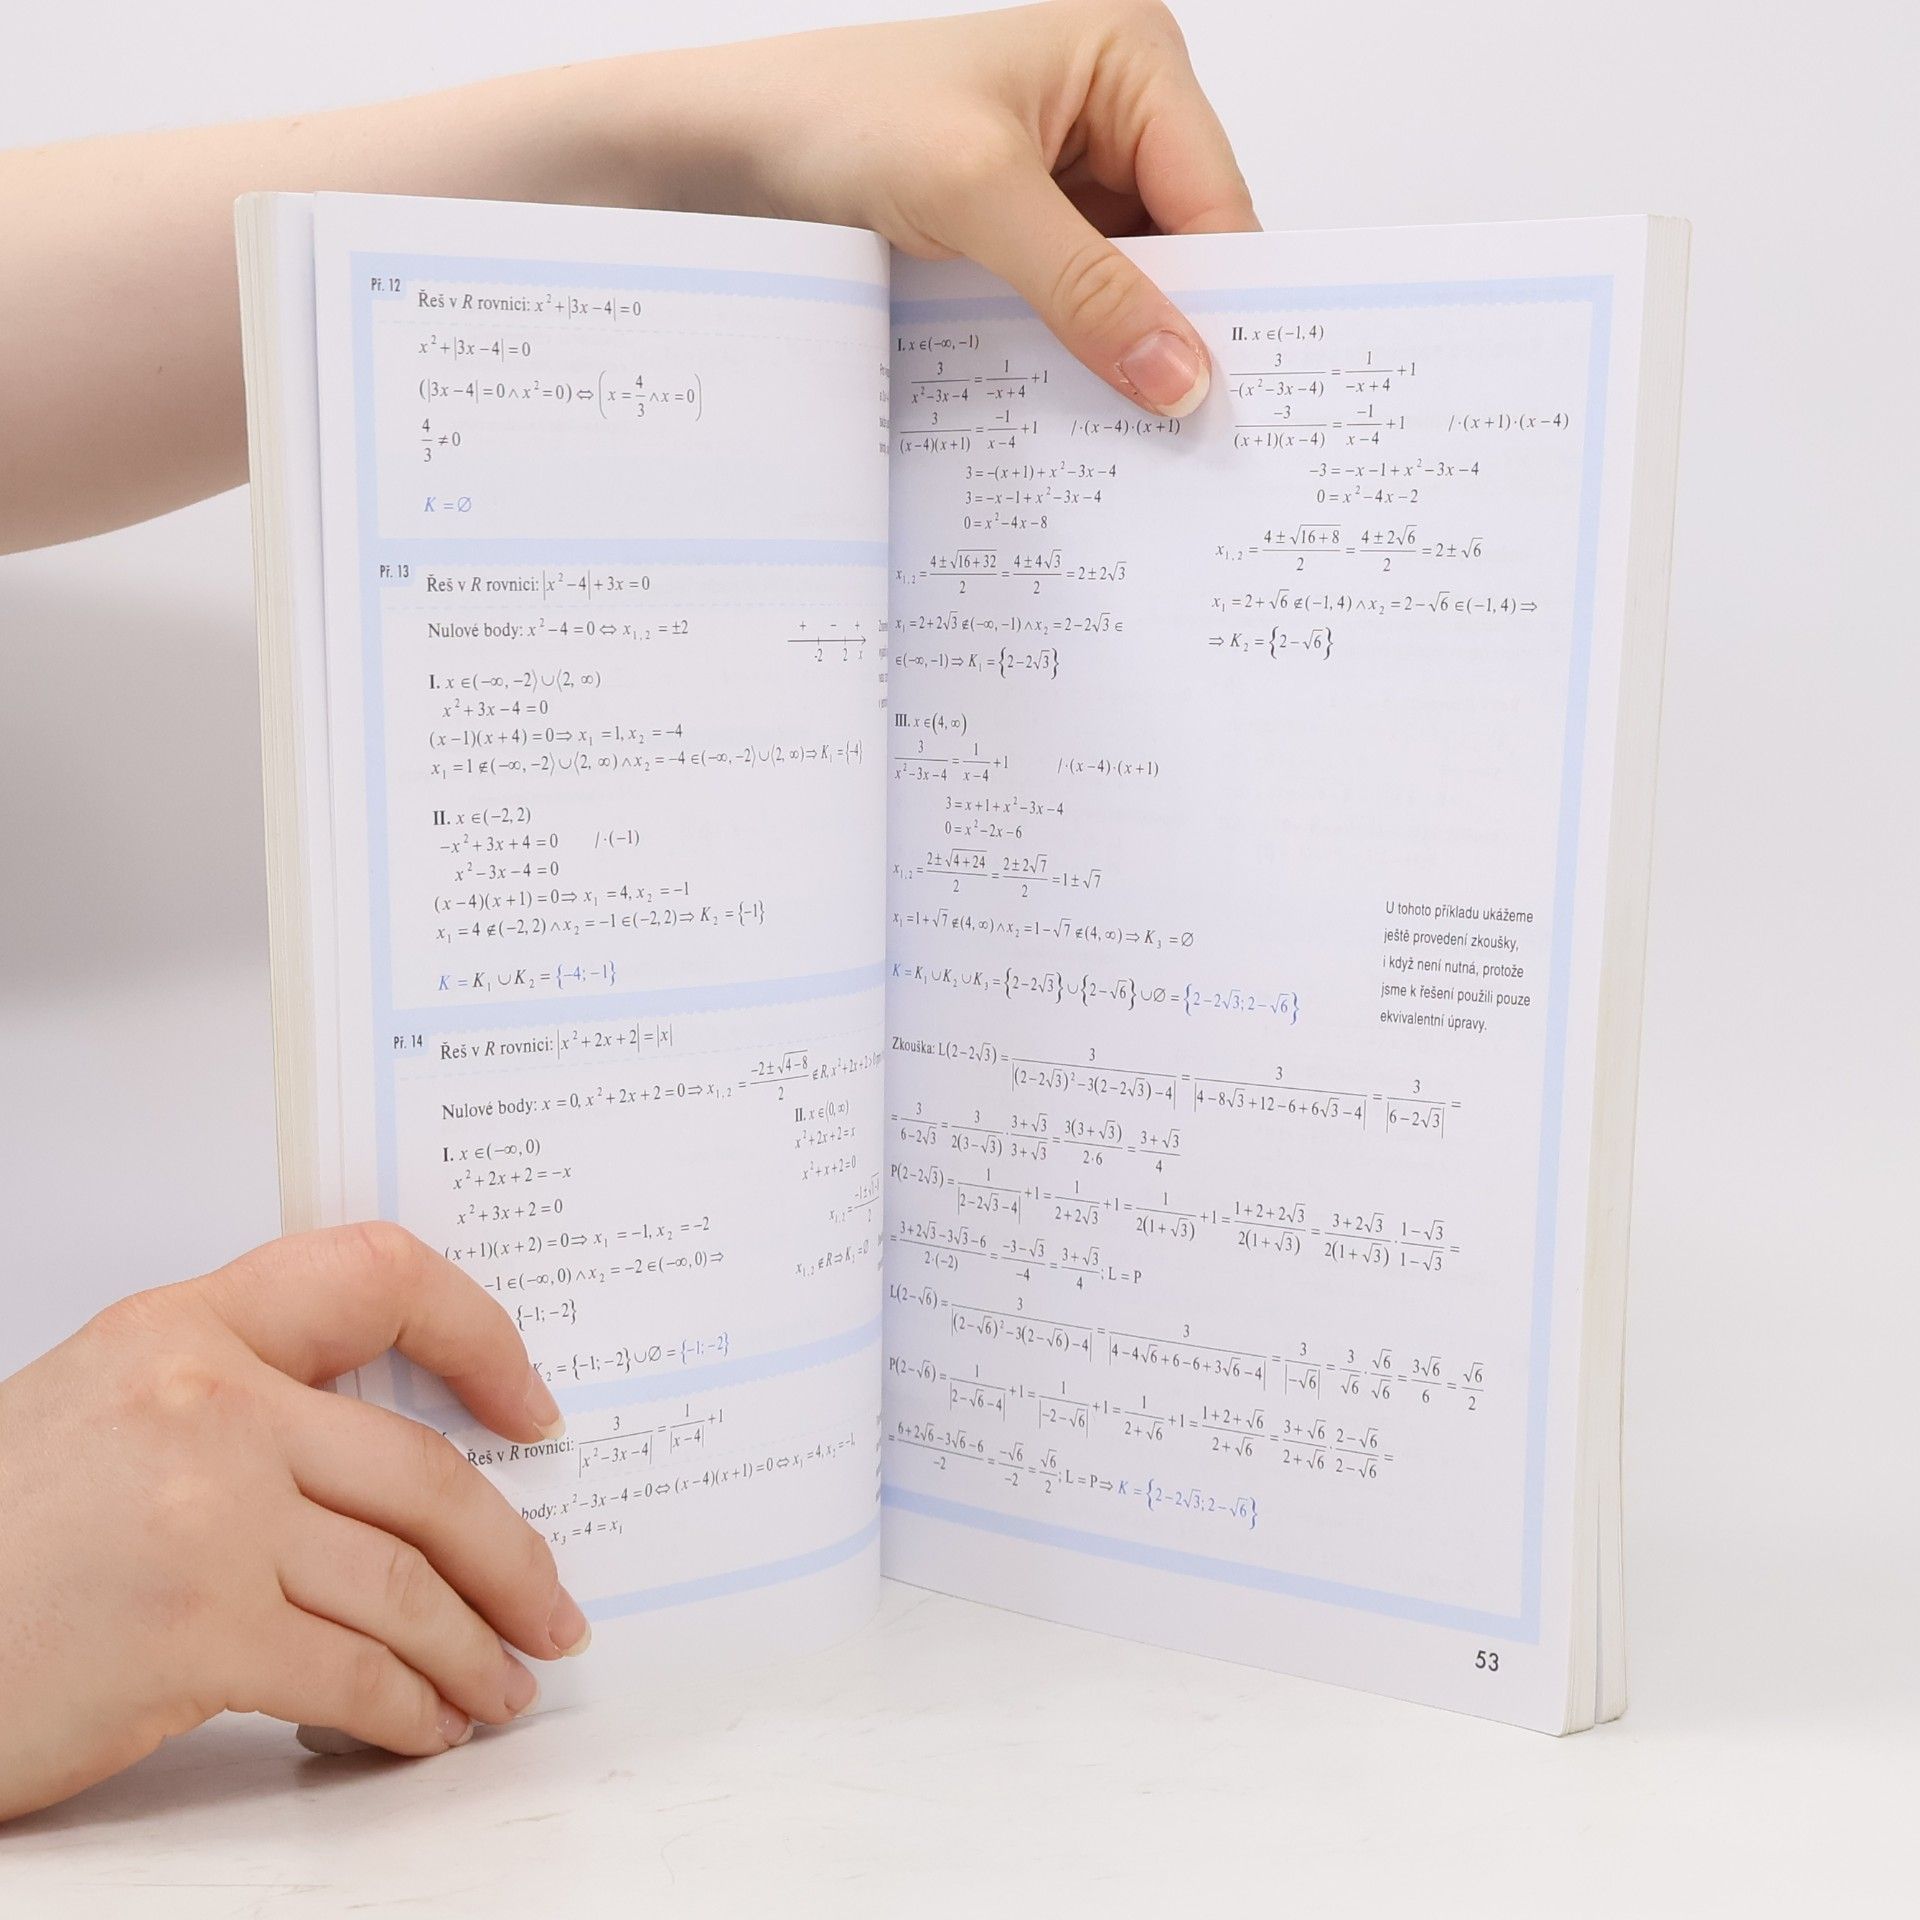 Př. 12
Řeš v R rovnici: x² + |3x − 4| = 0
x² + |3x − 4| = 0
(|3x − 4| = 0 ∧ x² = 0) ⇔ (x = 4/3 ∧ x = 0)
4/3 ≠ 0
K = ∅
Př. 13
Řeš v R rovnici: |x² − 4| + 3x = 0
Nulové body: x² − 4 = 0 ⇔ x₁,₂ = ±2
+ − +
-2 2 x
I. x ∈ (−∞, −2⟩ ∪ ⟨2, ∞)
x² + 3x − 4 = 0
(x − 1)(x + 4) = 0 ⇒ x₁ = 1, x₂ = −4
x₁ = 1 ∉ (−∞, −2⟩ ∪ ⟨2, ∞) ∧ x₂ = −4 ∈ (−∞, −2⟩ ∪ ⟨2, ∞) ⇒ K₁ = {−4}
II. x ∈ (−2, 2)
−x² + 3x + 4 = 0 / · (−1)
x² − 3x − 4 = 0
(x − 4)(x + 1) = 0 ⇒ x₁ = 4, x₂ = −1
x₁ = 4 ∉ (−2, 2) ∧ x₂ = −1 ∈ (−2, 2) ⇒ K₂ = {−1}
K = K₁ ∪ K₂ = {−4; −1}
Př. 14
Řeš v R rovnici: |x² + 2x + 2| = |x|
Nulové body: x = 0, x² + 2x + 2 = 0 ⇒ x₁,₂ = (−2 ± √(4 − 8))/2 ∉ R, x² + 2x + 2 > 0
I. x ∈ (−∞, 0)
x² + 2x + 2 = −x
x² + 3x + 2 = 0
(x + 1)(x + 2) = 0 ⇒ x₁ = −1, x₂ = −2
−1 ∈ (−∞, 0) ∧ x₂ = −2 ∈ (−∞, 0) ⇒
{−1; −2}
II. x ∈ ⟨0, ∞)
x² + 2x + 2 = x
x² + x + 2 = 0
x₁,₂ =
x₁,₂ ∉ R ⇒ K₂ = ∅
K₂ = {−1; −2} ∪ ∅ = {−1; −2}
Řeš v R rovnici: 3/|x² − 3x − 4| = 1/|x − 4| + 1
body: x² − 3x − 4 = 0 ⇔ (x − 4)(x + 1) = 0 ⇔ x₁ = 4, x₂ = −1,
x₃ = 4 = x₁
I. x ∈ (−∞, −1)
3/(x² − 3x − 4) = 1/(−x + 4) + 1
3/((x − 4)(x + 1)) = −1/(x − 4) + 1 / · (x − 4) · (x + 1)
3 = −(x + 1) + x² − 3x − 4
3 = −x − 1 + x² − 3x − 4
0 = x² − 4x − 8
x₁,₂ = (4 ± √(16 + 32))/2 = (4 ± 4√3)/2 = 2 ± 2√3
x₁ = 2 + 2√3 ∉ (−∞, −1) ∧ x₂ = 2 − 2√3 ∈
∈ (−∞, −1) ⇒ K₁ = {2 − 2√3}
II. x ∈ (−1, 4)
3/(−(x² − 3x − 4)) = 1/(−x + 4) + 1
−3/((x + 1)(x − 4)) = −1/(x − 4) + 1 / · (x + 1) · (x − 4)
−3 = −x − 1 + x² − 3x − 4
0 = x² − 4x − 2
x₁,₂ = (4 ± √(16 + 8))/2 = (4 ± 2√6)/2 = 2 ± √6
x₁ = 2 + √6 ∉ (−1, 4) ∧ x₂ = 2 − √6 ∈ (−1, 4) ⇒
⇒ K₂ = {2 − √6}
III. x ∈ (4, ∞)
3/(x² − 3x − 4) = 1/(x − 4) + 1 / · (x − 4) · (x + 1)
3 = x + 1 + x² − 3x − 4
0 = x² − 2x − 6
x₁,₂ = (2 ± √(4 + 24))/2 = (2 ± 2√7)/2 = 1 ± √7
x₁ = 1 + √7 ∉ (4, ∞) ∧ x₂ = 1 − √7 ∉ (4, ∞) ⇒ K₃ = ∅
K = K₁ ∪ K₂ ∪ K₃ = {2 − 2√3} ∪ {2 − √6} ∪ ∅ = {2 − 2√3; 2 − √6}
U tohoto příkladu ukážeme
ještě provedení zkoušky,
i když není nutná, protože
jsme k řešení použili pouze
ekvivalentní úpravy.
Zkouška: L(2 − 2√3) = 3/|(2 − 2√3)² − 3(2 − 2√3) − 4| = 3/|4 − 8√3 + 12 − 6 + 6√3 − 4| = 3/|6 − 2√3| =
= 3/(6 − 2√3) = 3/(2(3 − √3)) · (3 + √3)/(3 + √3) = 3(3 + √3)/(2·6) = (3 + √3)/4
P(2 − 2√3) = 1/|2 − 2√3 − 4| + 1 = 1/(2 + 2√3) + 1 = 1/(2(1 + √3)) + 1 = (1 + 2 + 2√3)/(2(1 + √3)) = (3 + 2√3)/(2(1 + √3)) · (1 − √3)/(1 − √3) =
= (3 + 2√3 − 3√3 − 6)/(2·(−2)) = (−3 − √3)/−4 = (3 + √3)/4; L = P
L(2 − √6) = 3/|(2 − √6)² − 3(2 − √6) − 4| = 3/|4 − 4√6 + 6 − 6 + 3√6 − 4| = 3/|−√6| = 3/√6 · √6/√6 = 3√6/6 = √6/2
P(2 − √6) = 1/|2 − √6 − 4| + 1 = 1/|−2 − √6| + 1 = 1/(2 + √6) + 1 = (1 + 2 + √6)/(2 + √6) = (3 + √6)/(2 + √6) · (2 − √6)/(2 − √6) =
= (6 + 2√6 − 3√6 − 6)/−2 = −√6/−2 = √6/2; L = P ⇒ K = {2 − 2√3; 2 − √6}
53